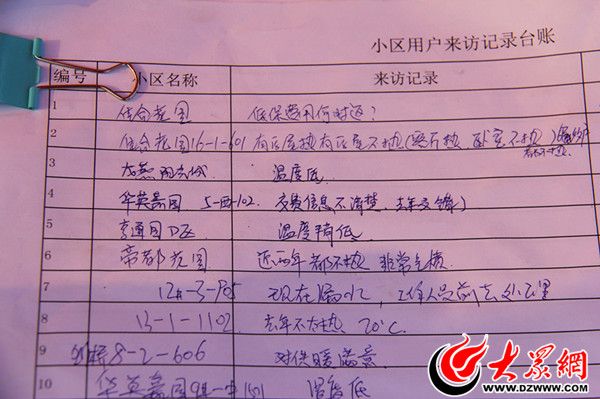 小区用户来访记录台账
编号 小区名称 来访记录
1 佳合花园 低保费用何时返?
2 佳合花园16-1-601 有区屋热有区屋不热(客厅热 卧室不热)
3 温度低
4 华英嘉园 5-西-102. 交费信息不清楚,去年交错)
5 亨通园D区 温度稍低
6 帝都花园 近两年都不热 非常气愤
7 12#-3-905 现在漏水,工作人员前去处理
8 13-1-1102 去年不太热 20℃
9 8-2-606 对供暖满意
10 华英嘉园 温度低
大众網
WWW.DZWWW.COM